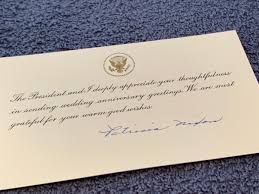 The President and I deeply appreciate your thoughtfulness
in sending wedding anniversary greetings. We are most
grateful for your warm good wishes.
Patricia Nixon